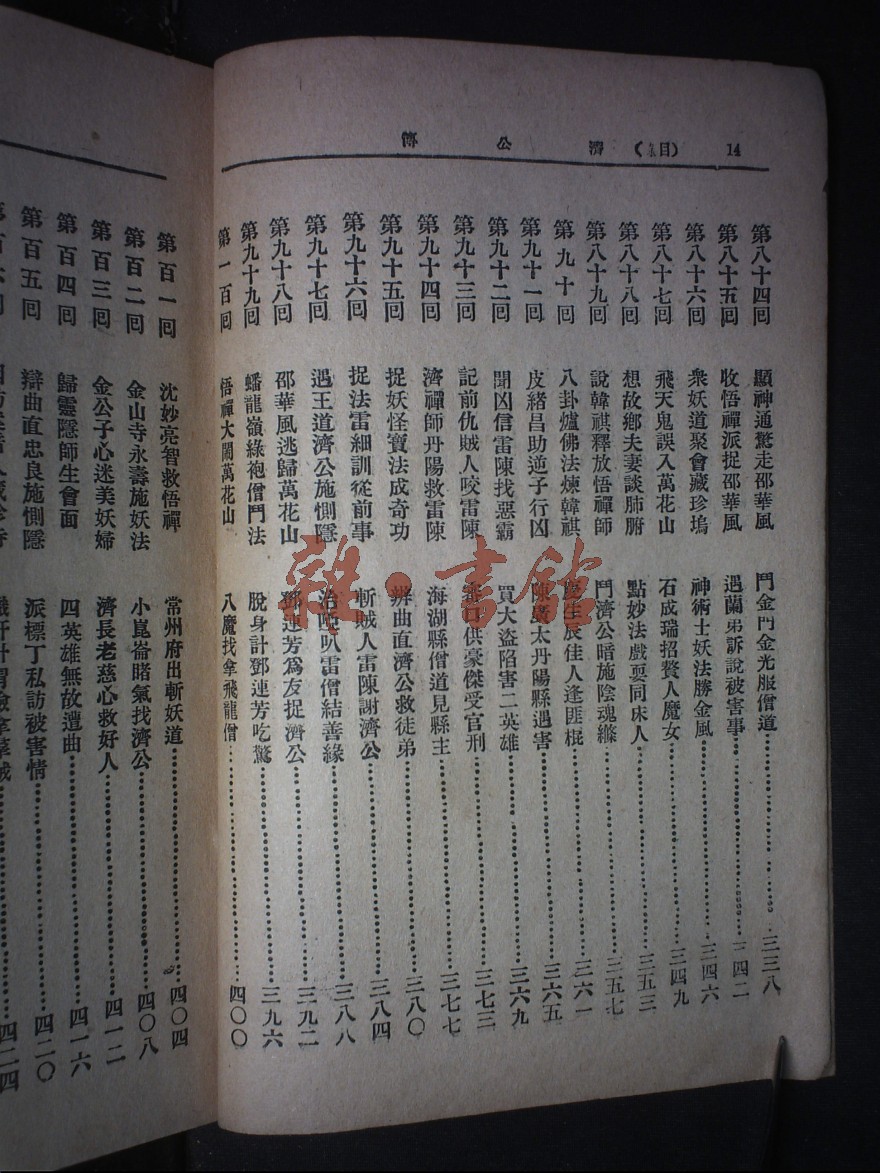 14 (目錄) 濟公傳
第八十四回 顯神通驚走邵華風 鬥金鬥金光服僧道 三三八
第八十五回 收悟禪派捉邵華風 遇蘭弟訴說被害事 三四二
第八十六回 衆妖道聚會藏珍塢 神術士妖法勝金風 三四六
第八十七回 飛天鬼誤入萬花山 石成瑞招贅人魔女 三四九
第八十八回 想故鄉夫妻談肺腑 點妙法戲耍同床人 三五三
第八十九回 說韓祺釋放悟禪師 鬥濟公暗施陰魂縧 三五七
第九十回 八卦爐佛法煉韓祺 慶生辰佳人逢匪棍 三六一
第九十一回 皮緒昌助逆子行凶 陳廣太丹陽縣遇害 三六五
第九十二回 聞凶信雷陳找惡霸 買大盜陷害二英雄 三六九
第九十三回 記前仇賊人咬雷陳 審口供豪傑受官刑 三七三
第九十四回 濟禪師丹陽救雷陳 海湖縣僧道見縣主 三七七
第九十五回 捉妖怪寶法成奇功 辨曲直濟公救徒弟 三八〇
第九十六回 捉法雷細訓從前事 斬賊人雷陳謝濟公 三八四
第九十七回 遇王道濟公施惻隱 治啞叭雷僧結善緣 三八八
第九十八回 邵華風逃歸萬花山 鄧連芳爲友捉濟公 三九二
第九十九回 蟠龍嶺綠袍僧鬥法 脫身計鄧連芳吃驚 三九六
第一百回 悟禪大鬧萬花山 八魔找拿飛龍僧 四〇〇
第百一回 沈妙亮智救悟禪 常州府出斬妖道 四〇四
第百二回 金山寺永壽施妖法 小崑崙賭氣找濟公 四〇八
第百三回 金公子心迷美妖婦 濟長老慈心救好人 四一二
第百四回 歸靈隱師生會面 四英雄無故遭曲 四一六
第百五回 辯曲直忠良施惻隱 派標丁私訪被害情 四二〇
四二四
雜·書館